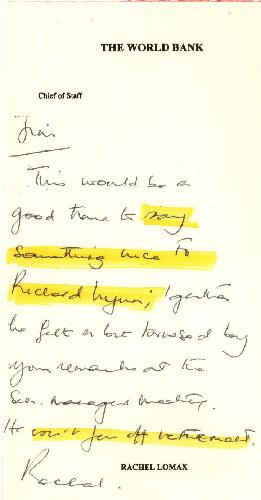 THE WORLD BANK
Chief of Staff
Jim
This would be a
good time to say
something nice to
Richard Lynn; I gather
he felt a bit bruised by
your remarks at the
Sen. managers meeting.
He isn't far off retirement.
Rachel.
RACHEL LOMAX